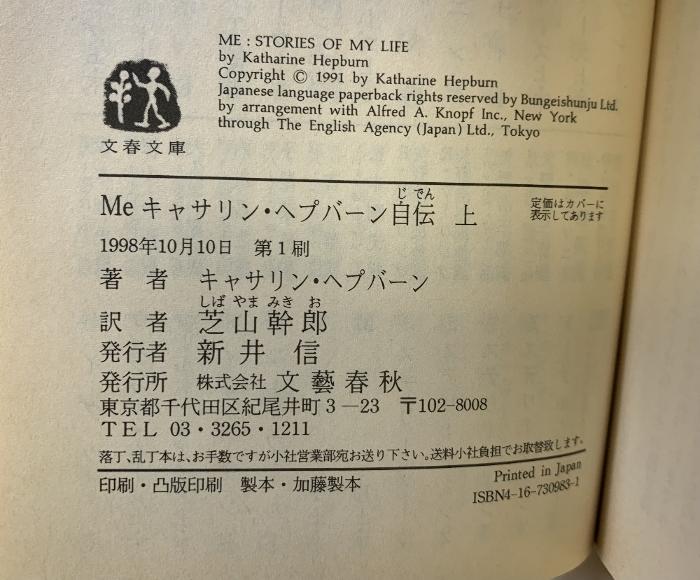 ME : STORIES OF MY LIFE
by Katharine Hepburn
Copyright © 1991 by Katharine Hepburn
Japanese language paperback rights reserved by Bungeishunju Ltd.
by arrangement with Alfred A. Knopf Inc., New York
through The English Agency (Japan) Ltd., Tokyo
文春文庫
じ でん
Me キャサリン・ヘプバーン自伝 上
定価はカバーに
表示してあります
1998年10月10日 第1刷
著 者 キャサリン・ヘプバーン
しば やま みき お
訳 者 芝山幹郎
発行者 新井 信
発行所 株式会社 文藝春秋
東京都千代田区紀尾井町3―23 〒102-8008
TEL 03・3265・1211
落丁、乱丁本は、お手数ですが小社営業部宛お送り下さい。送料小社負担でお取替致します。
印刷・凸版印刷 製本・加藤製本
Printed in Japan
ISBN4-16-730983-1